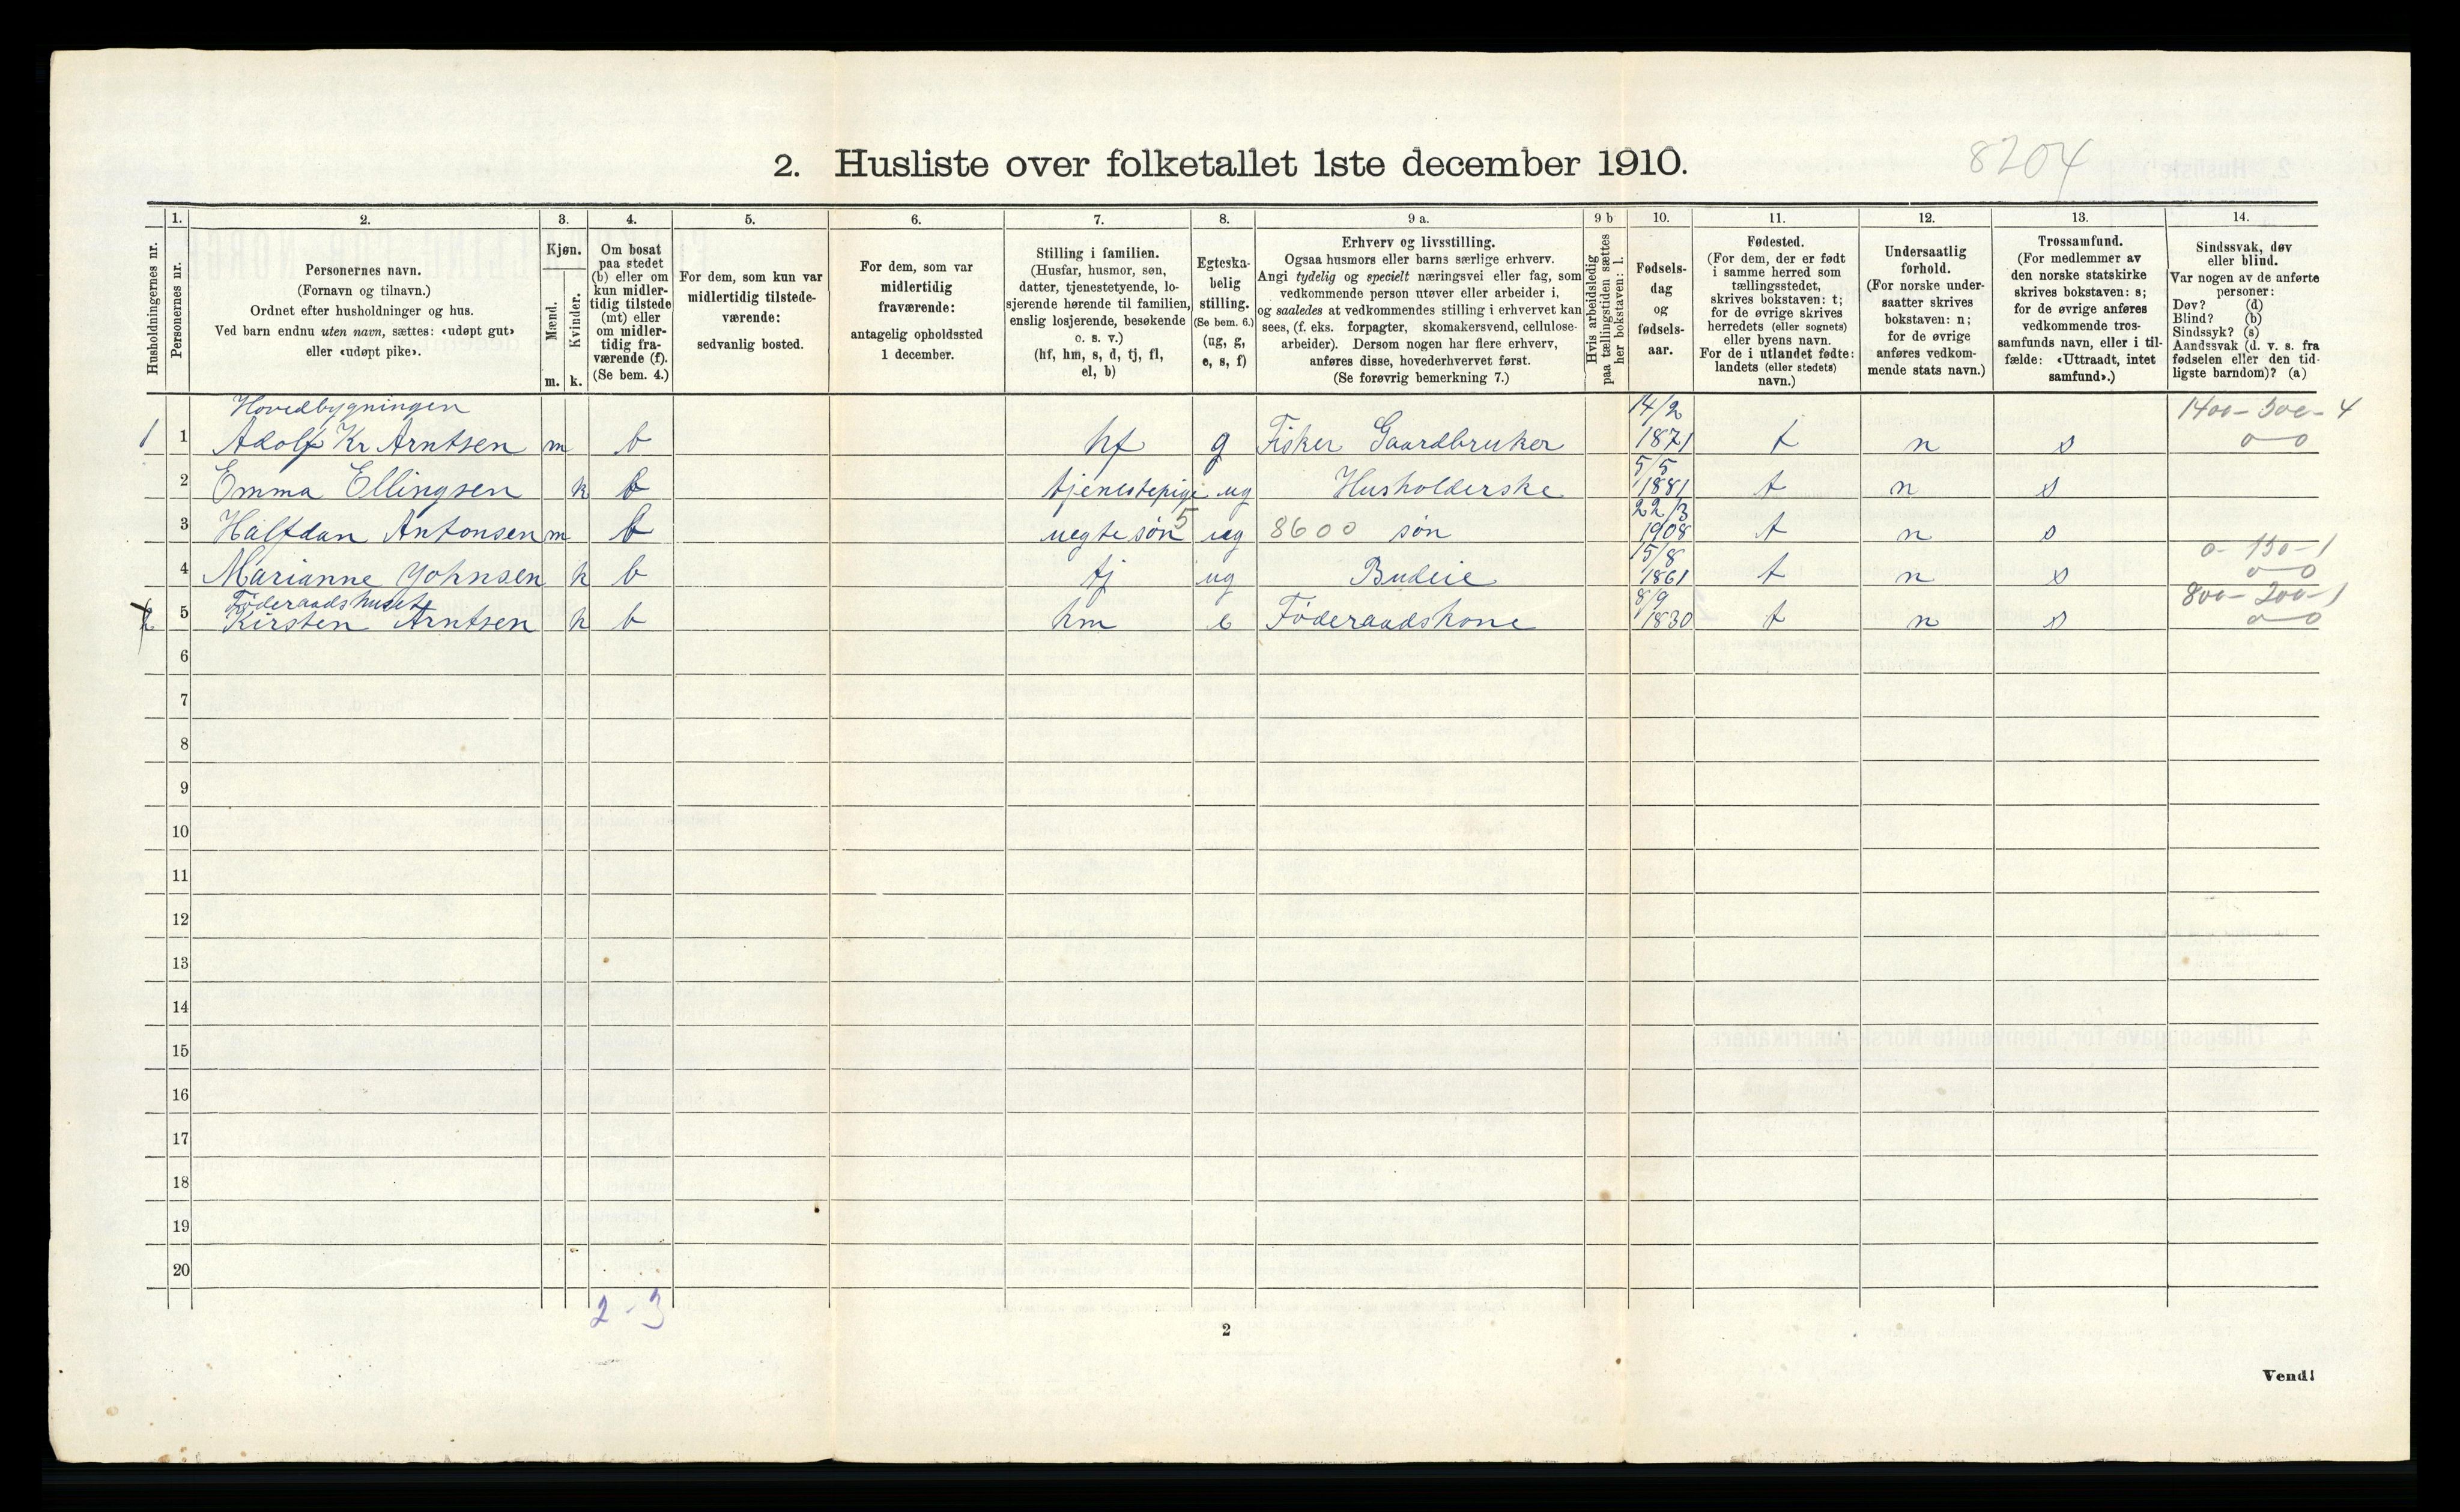 2. Husliste over folketallet 1ste december 1910.
8204
Husholdningernes nr.
1.
Personernes nr.
2.
Personernes navn.
(Fornavn og tilnavn.)
Ordnet efter husholdninger og hus.
Ved barn endnu uten navn, sættes: «udøpt gut»
eller «udøpt pike».
3.
Kjøn.
Mænd.
Kvinder.
m. k.
4.
Om bosat
paa stedet
(b) eller om
kun midler-
tidig tilstede
(mt) eller
om midler-
tidig fra-
værende (f).
(Se bem. 4.)
5.
For dem, som kun var
midlertidig tilstede-
værende:
sedvanlig bosted.
6.
For dem, som var
midlertidig
fraværende:
antagelig opholdssted
1 december.
7.
Stilling i familien.
(Husfar, husmor, søn,
datter, tjenestetyende, lo-
sjerende hørende til familien,
enslig losjerende, besøkende
o. s. v.)
(hf, hm, s, d, tj, fl,
el, b)
8.
Egteska-
belig
stilling.
(Se bem. 6.)
(ug, g,
e, s, f)
9 a.
Erhverv og livsstilling.
Ogsaa husmors eller barns særlige erhverv.
Angi tydelig og specielt næringsvei eller fag, som
vedkommende person utøver eller arbeider i,
og saaledes at vedkommendes stilling i erhvervet kan
sees, (f. eks. forpagter, skomakersvend, cellulose-
arbeider). Dersom nogen har flere erhverv,
anføres disse, hovederhvervet først.
(Se forøvrig bemerkning 7.)
9 b
Hvis arbeidsledig
paa tællingstiden sættes
her bokstaven: l.
10.
Fødsels-
dag
og
fødsels-
aar.
11.
Fødested.
(For dem, der er født
i samme herred som
tællingsstedet,
skrives bokstaven: t;
for de øvrige skrives
herredets (eller sognets)
eller byens navn.
For de i utlandet fødte:
landets (eller stedets)
navn.)
12.
Undersaatlig
forhold.
(For norske under-
saatter skrives
bokstaven: n;
for de øvrige
anføres vedkom-
mende stats navn.)
13.
Trossamfund.
(For medlemmer av
den norske statskirke
skrives bokstaven: s;
for de øvrige anføres
vedkommende tros-
samfunds navn, eller i til-
fælde: «Uttraadt, intet
samfund».)
14.
Sindssvak, døv
eller blind.
Var nogen av de anførte
personer:
Døv? (d)
Blind? (b)
Sindssyk? (s)
Aandssvak (d. v. s. fra
fødselen eller den tid-
ligste barndom)? (a)
Hovedbygningen 14/2 1400-500-4
1 1 Adolf Kr Arntsen m b hf g Fisker Gaardbruker 1871 t n s 0-0
5/5
2 Emma Ellingsen k b tjenestepige ug Husholderske 1881 t n s
22/3
3 Halfdan Antonsen m b uegte søn 5 ug 8600 søn 1908 t n s
15/8 0-150-1
4 Marianne Johnsen k b tj ug Budeie 1861 t n s 0-0
Føderaadshuset 8/9 800-200-1
2 5 Kirsten Arntsen k b hm e Føderaadskone 1830 t n s 0-0
6
7
8
9
10
11
12
13
14
15
16
17
18
19
20
2-3
2
Vend!